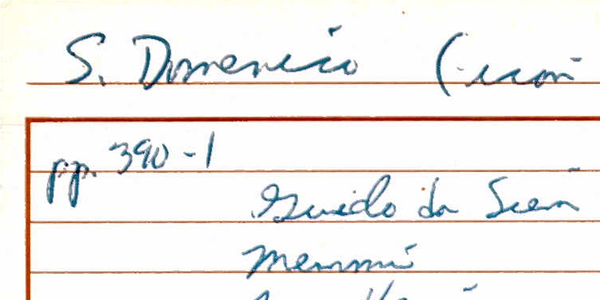 S. Domenico
pp. 390-1
Guido da Siena
Memmi